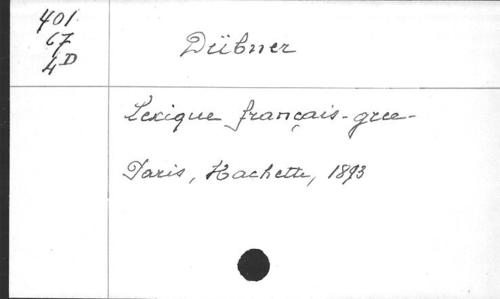 401
67
4D
Dübner
Lexique français-grec-
Paris, Hachette, 1893